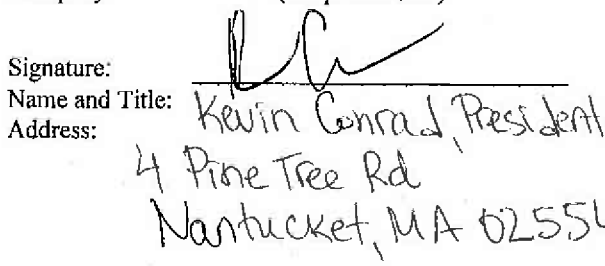 Signature:
Name and Title: Kevin Conrad, President
Address:
4 Pine Tree Rd
Nantucket, MA 02554